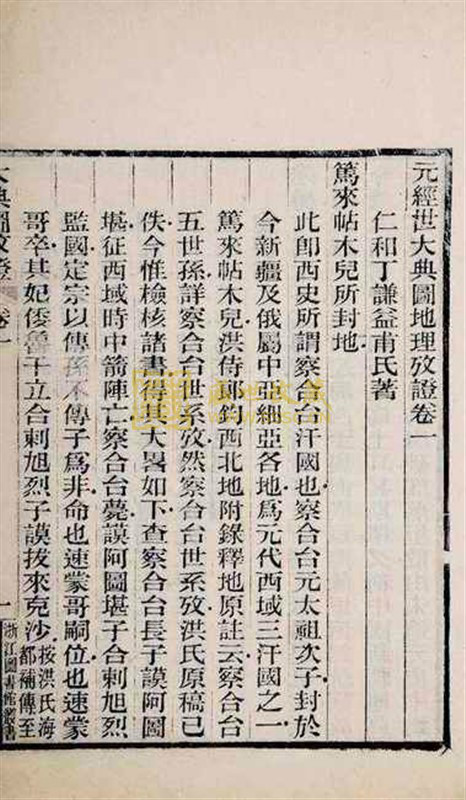 元經世大典圖地理攷證卷一
仁和丁謙益甫氏著
篤來帖木兒所封地
此卽西史所謂察合台汗國也察合台元太祖次子封於
今新疆及俄屬中亞細亞各地爲元代西域三汗國之一
篤來帖木兒洪侍郞鈞西北地附錄釋地原註云察合台
五世孫詳察合台世系攷然察合台世系攷洪氏原稿已
佚今惟檢核諸書得其大畧如下查察合台長子謨阿圖
堪征西域時中箭陣亡察合台薨謨阿圖堪子合剌旭烈
監國定宗以傳孫不傳子爲非命也速蒙哥嗣位也速蒙
哥卒其妃倭魯干立合剌旭烈子謨拔來克沙
按洪氏海
都補傳至
大典圖攷證 卷一
一
浙江圖書館叢書